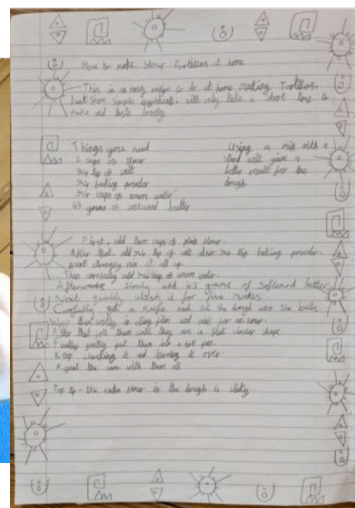 How to make flour Tortillas at home
This is a very easy recipe to do at home making Tortillas.
Just some simple ingredients, will only take a short time to
make and taste lovely
Things you need
2 cups of flour
tsp of salt
tsp baking powder
cups of warm water
43 grams of softened butter
Using a mix with a
stand will give a
better result for the
dough
First, add two cups of plain flour.
After that add tsp of salt also tsp baking powder.
Next strongly mix it all up.
Then carefully add cup of warm water.
Afterwards slowly add 43 grams of softened butter
Next quickly whisk it for five minutes.
Carefully get a knife and cut the dough into six balls.
Wrap them in cling film and rest for an hour.
After that roll them until they are a flat circular shape.
Finally gently put them in a hot pan.
Keep checking it and turning it over.
Repeat the same with them all
Top tip - Use extra flour if the dough is sticky